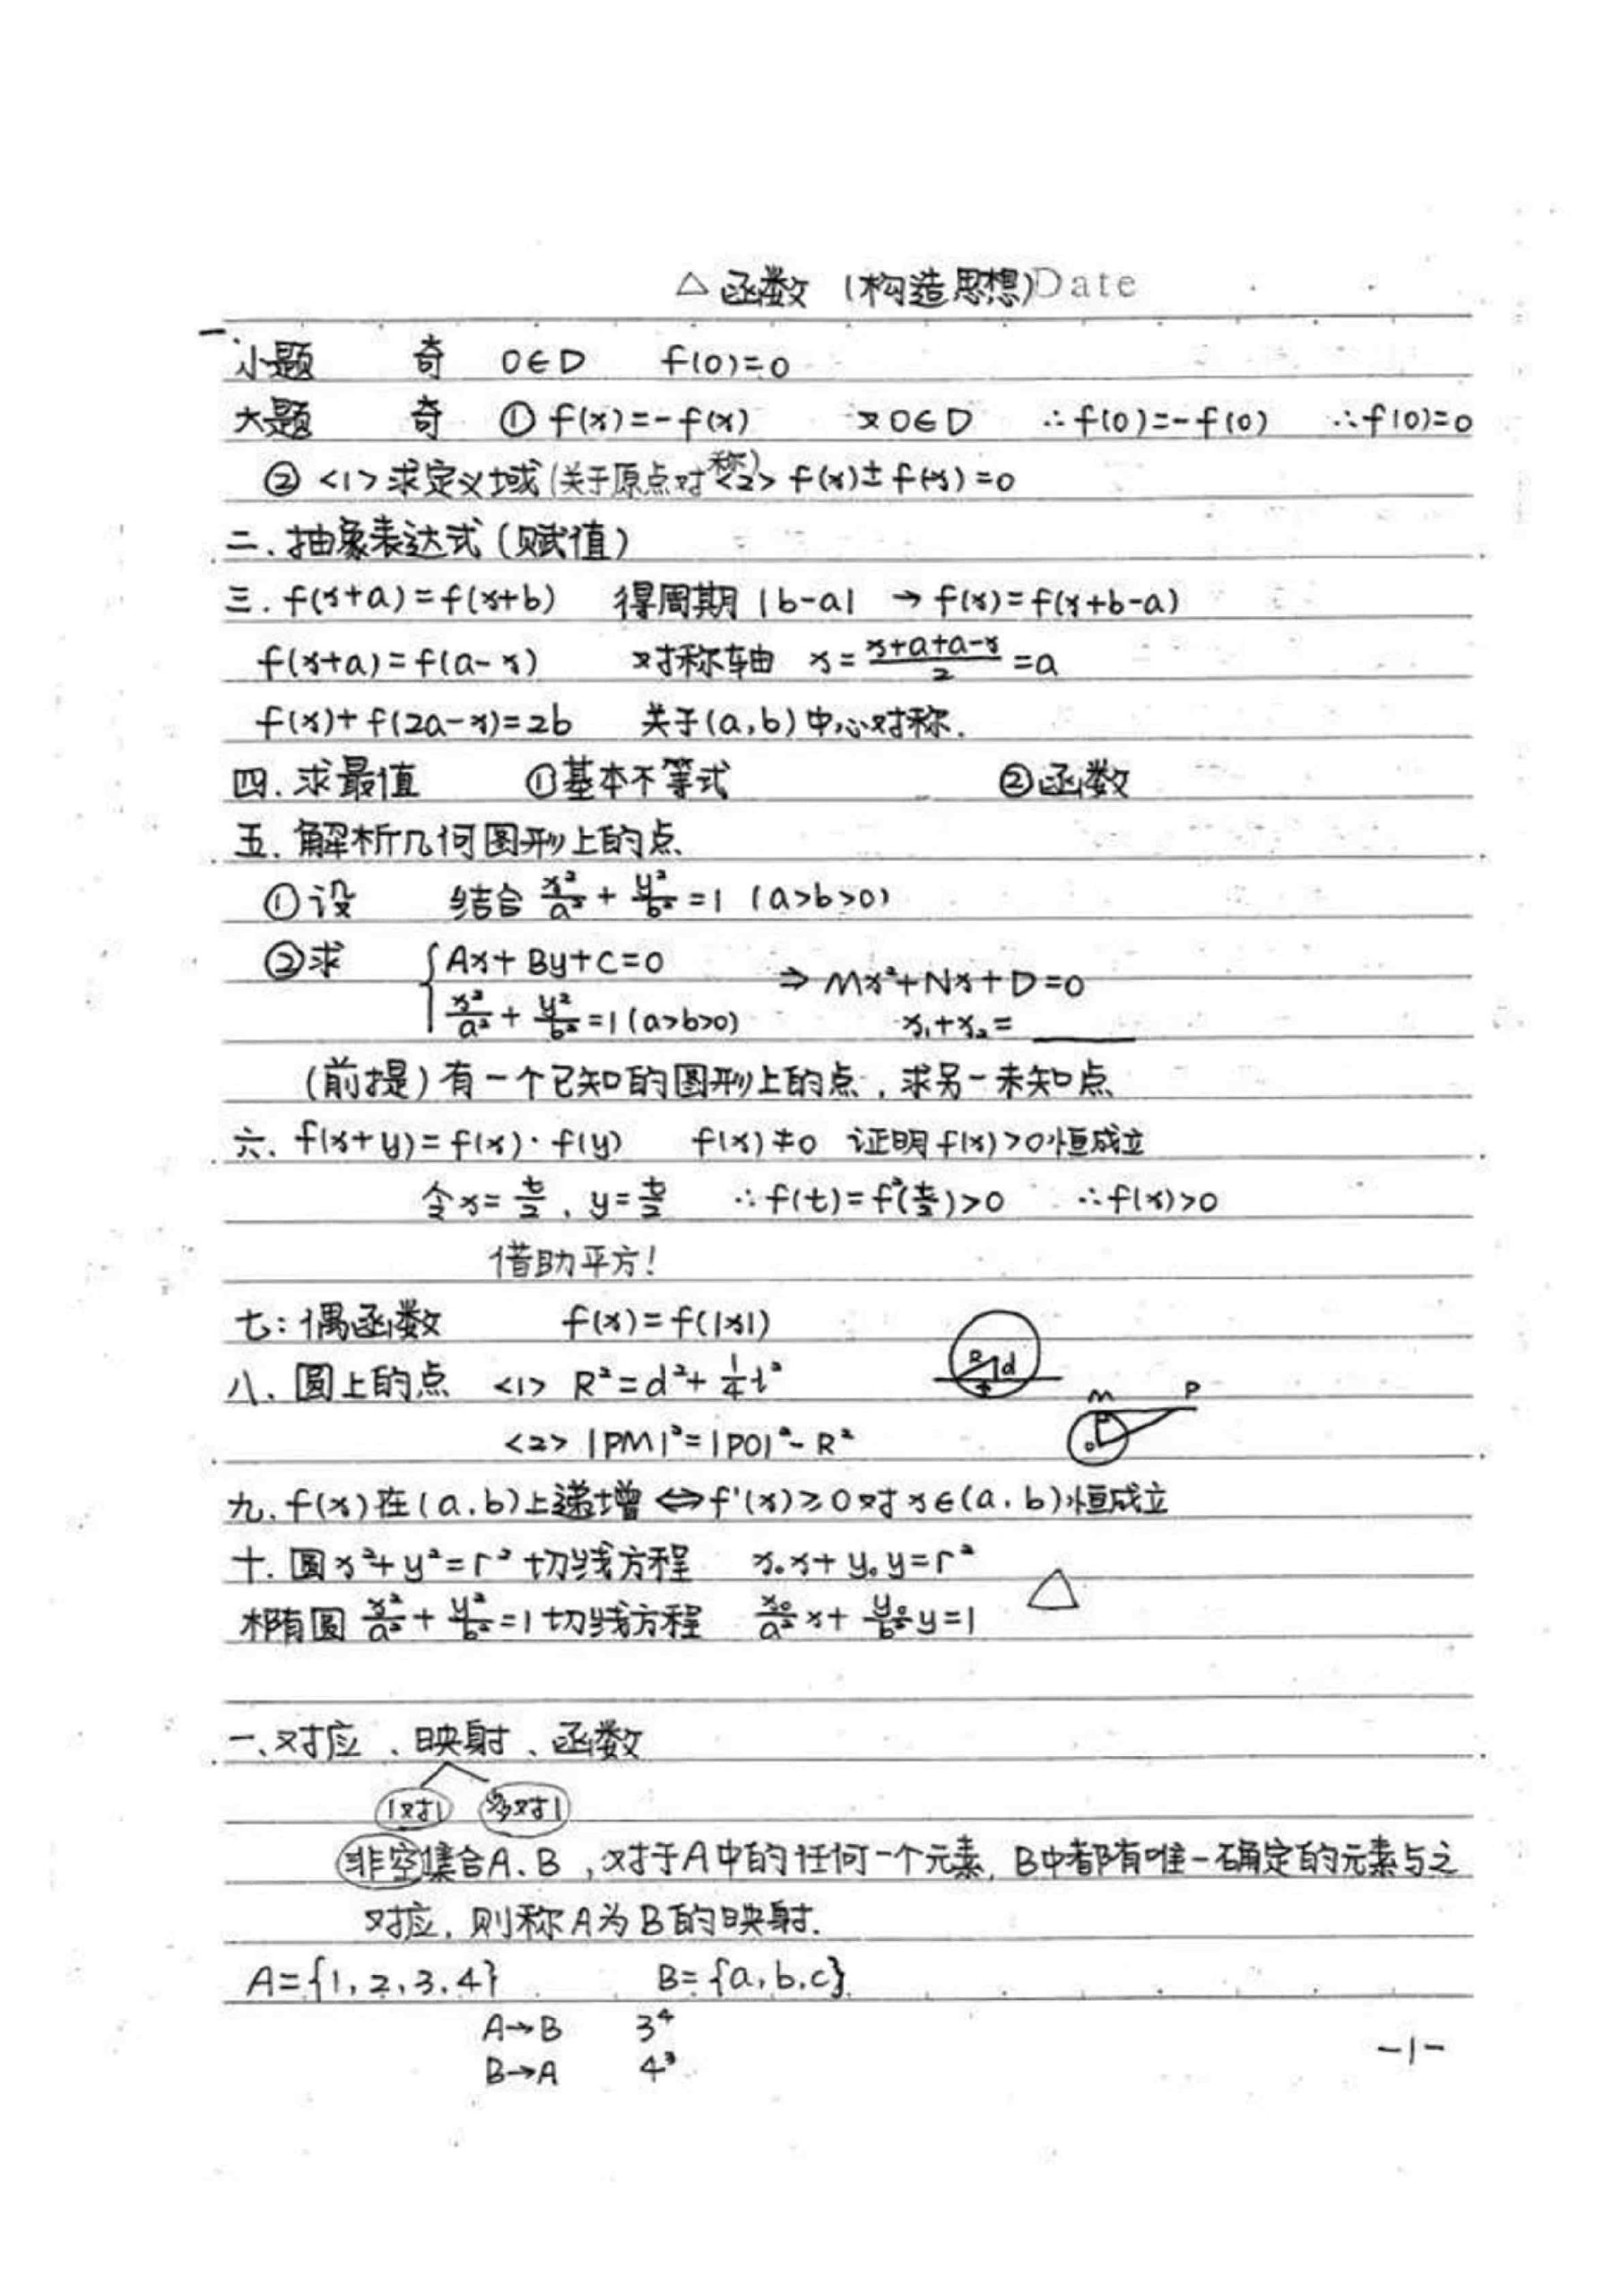 △函数（构造思想）Date
一.
小题 奇 0∈D f(0)=0
大题 奇 ① f(x)=-f(x) 又0∈D ∴f(0)=-f(0) ∴f(0)=0
② <1>求定义域(关于原点对称) <2> f(x)±f(-x)=0
二、抽象表达式(赋值)
三. f(x+a)=f(x+b) 得周期|b-a| → f(x)=f(x+b-a)
f(x+a)=f(a-x) 对称轴 x=(x+a+a-x)/2=a
f(x)+f(2a-x)=2b 关于(a,b)中心对称.
四. 求最值 ①基本不等式 ②函数
五. 解析几何图形上的点
①设 结合 x²/a² + y²/b² =1 (a>b>0)
②求 { Ax+By+C=0
⇒ Mx²+Nx+D=0
x²/a² + y²/b² =1(a>b>0) x₁+x₂=____
(前提)有一个已知的图形上的点,求另一未知点
六. f(x+y)=f(x)·f(y) f(x)≠0 证明f(x)>0恒成立
令x=t/2, y=t/2 ∴f(t)=f²(t/2)>0 ∴f(x)>0
借助平方!
七:偶函数 f(x)=f(|x|)
八. 圆上的点 <1> R²=d²+¼l²
R d
M P
<2> |PM|²=|PO|²-R²
O
九. f(x)在(a.b)上递增⇔f'(x)≥0对x∈(a.b)恒成立
十. 圆x²+y²=r²切线方程 x₀x+y₀y=r²
椭圆 x²/a² + y²/b² =1切线方程 x₀/a² x+ y₀/b² y=1 △
一、对应、映射、函数
1对1 多对1
非空集合A.B,对于A中的任何一个元素,B中都有唯一确定的元素与之
对应,则称A为B的映射.
A={1,2,3,4} B={a,b,c}
A→B 3⁴
B→A 4³
-1-